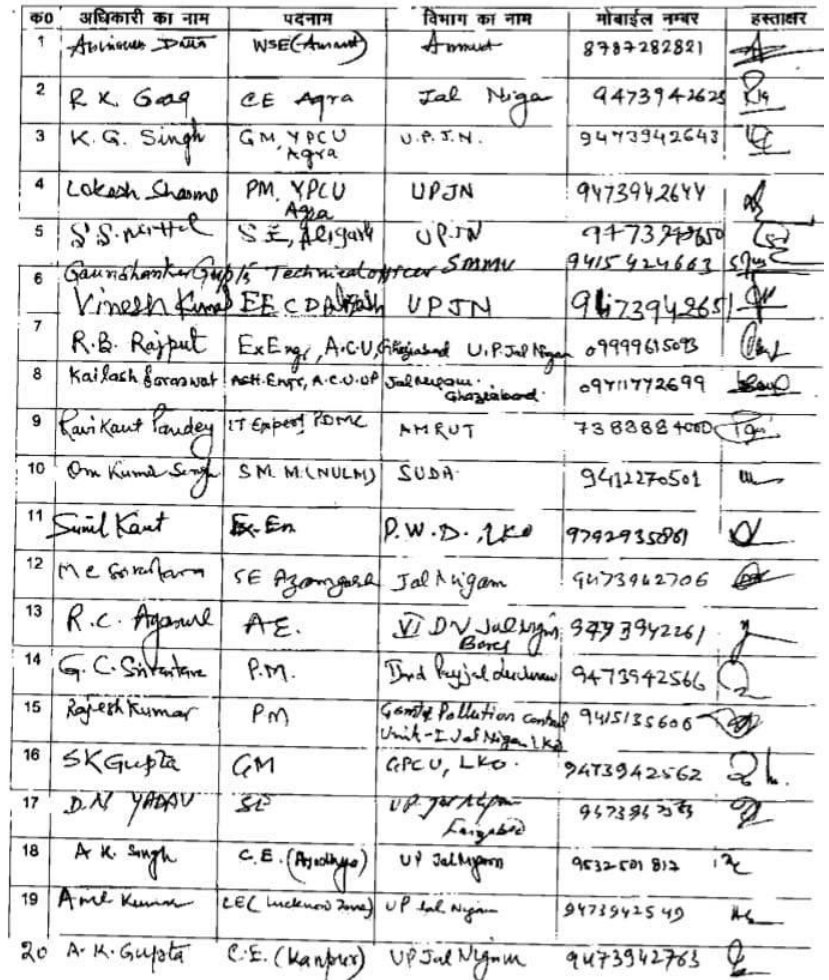 क0 अधिकारी का नाम पदनाम विभाग का नाम मोबाईल नम्बर हस्ताक्षर
1 WSE(Amrut) Ammut 8787282821
2 R K. Garg CE Agra Jal Niga 9473942625
3 K. G. Singh GM, YPCU U.P.J.N. 9473942643
Agra
4 Lokesh Sharma PM, YPCU UPJN 9473942644
Agra
5 S.S. Mittal S.E, Aligarh UPJN
6 Gaurishanker Gupta Technical officer SMMU 9415424663
Vinesh Kumar EE CD UPJN 9473942651
7 R.B. Rajput ExEngr, A.C.U, Ghaziabad U.P. Jal Nigam 09999615093
8 Kailash Saraswat Astt. Engr, A.C.U. UP Jal Nigam. 09711772699
Ghaziabad.
9 Ravi Kant Pandey IT Expert PDMC AMRUT 7388884000
10 Om Kumar Singh S M. M. (NULM) SUDA 9412270501
11 Sunil Kant Ex-En P.W.D., LKO
12 SE Azamgarh Jal Nigam 9473942706
13 R.C. Agarwal A.E. VI DN Jal Nigam
14 G. C. Srivastava P.M. 9473942566
15 Rajesh Kumar PM Gomti Pollution control 9415135606
Unit-I Jal Nigam LKO
16 SK Gupta GM GPCU, LKO. 9473942562
17 D.N YADAV SE UP Jal Nigam
18 A K. Singh C.E. (Ayodhya) UP Jal Nigam 9532501812
19 Anil Kumar CE (Lucknow Zone) UP Jal Nigam 9473942549
20 A. K. Gupta C.E. (Kanpur) UP Jal Nigam 9473942763